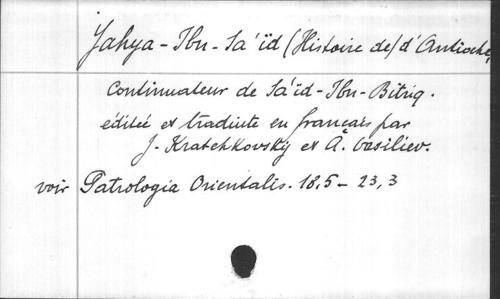 Yahya-Ibn-Sa'ïd (Histoire de) d'Antioche,
Continuateur de Sa'ïd-Ibn-Bitriq.
éditée et traduite en français par
J. Kratchkovsky et A. Vasiliev.
voir Patrologia Orientalis. 18,5 - 23,3